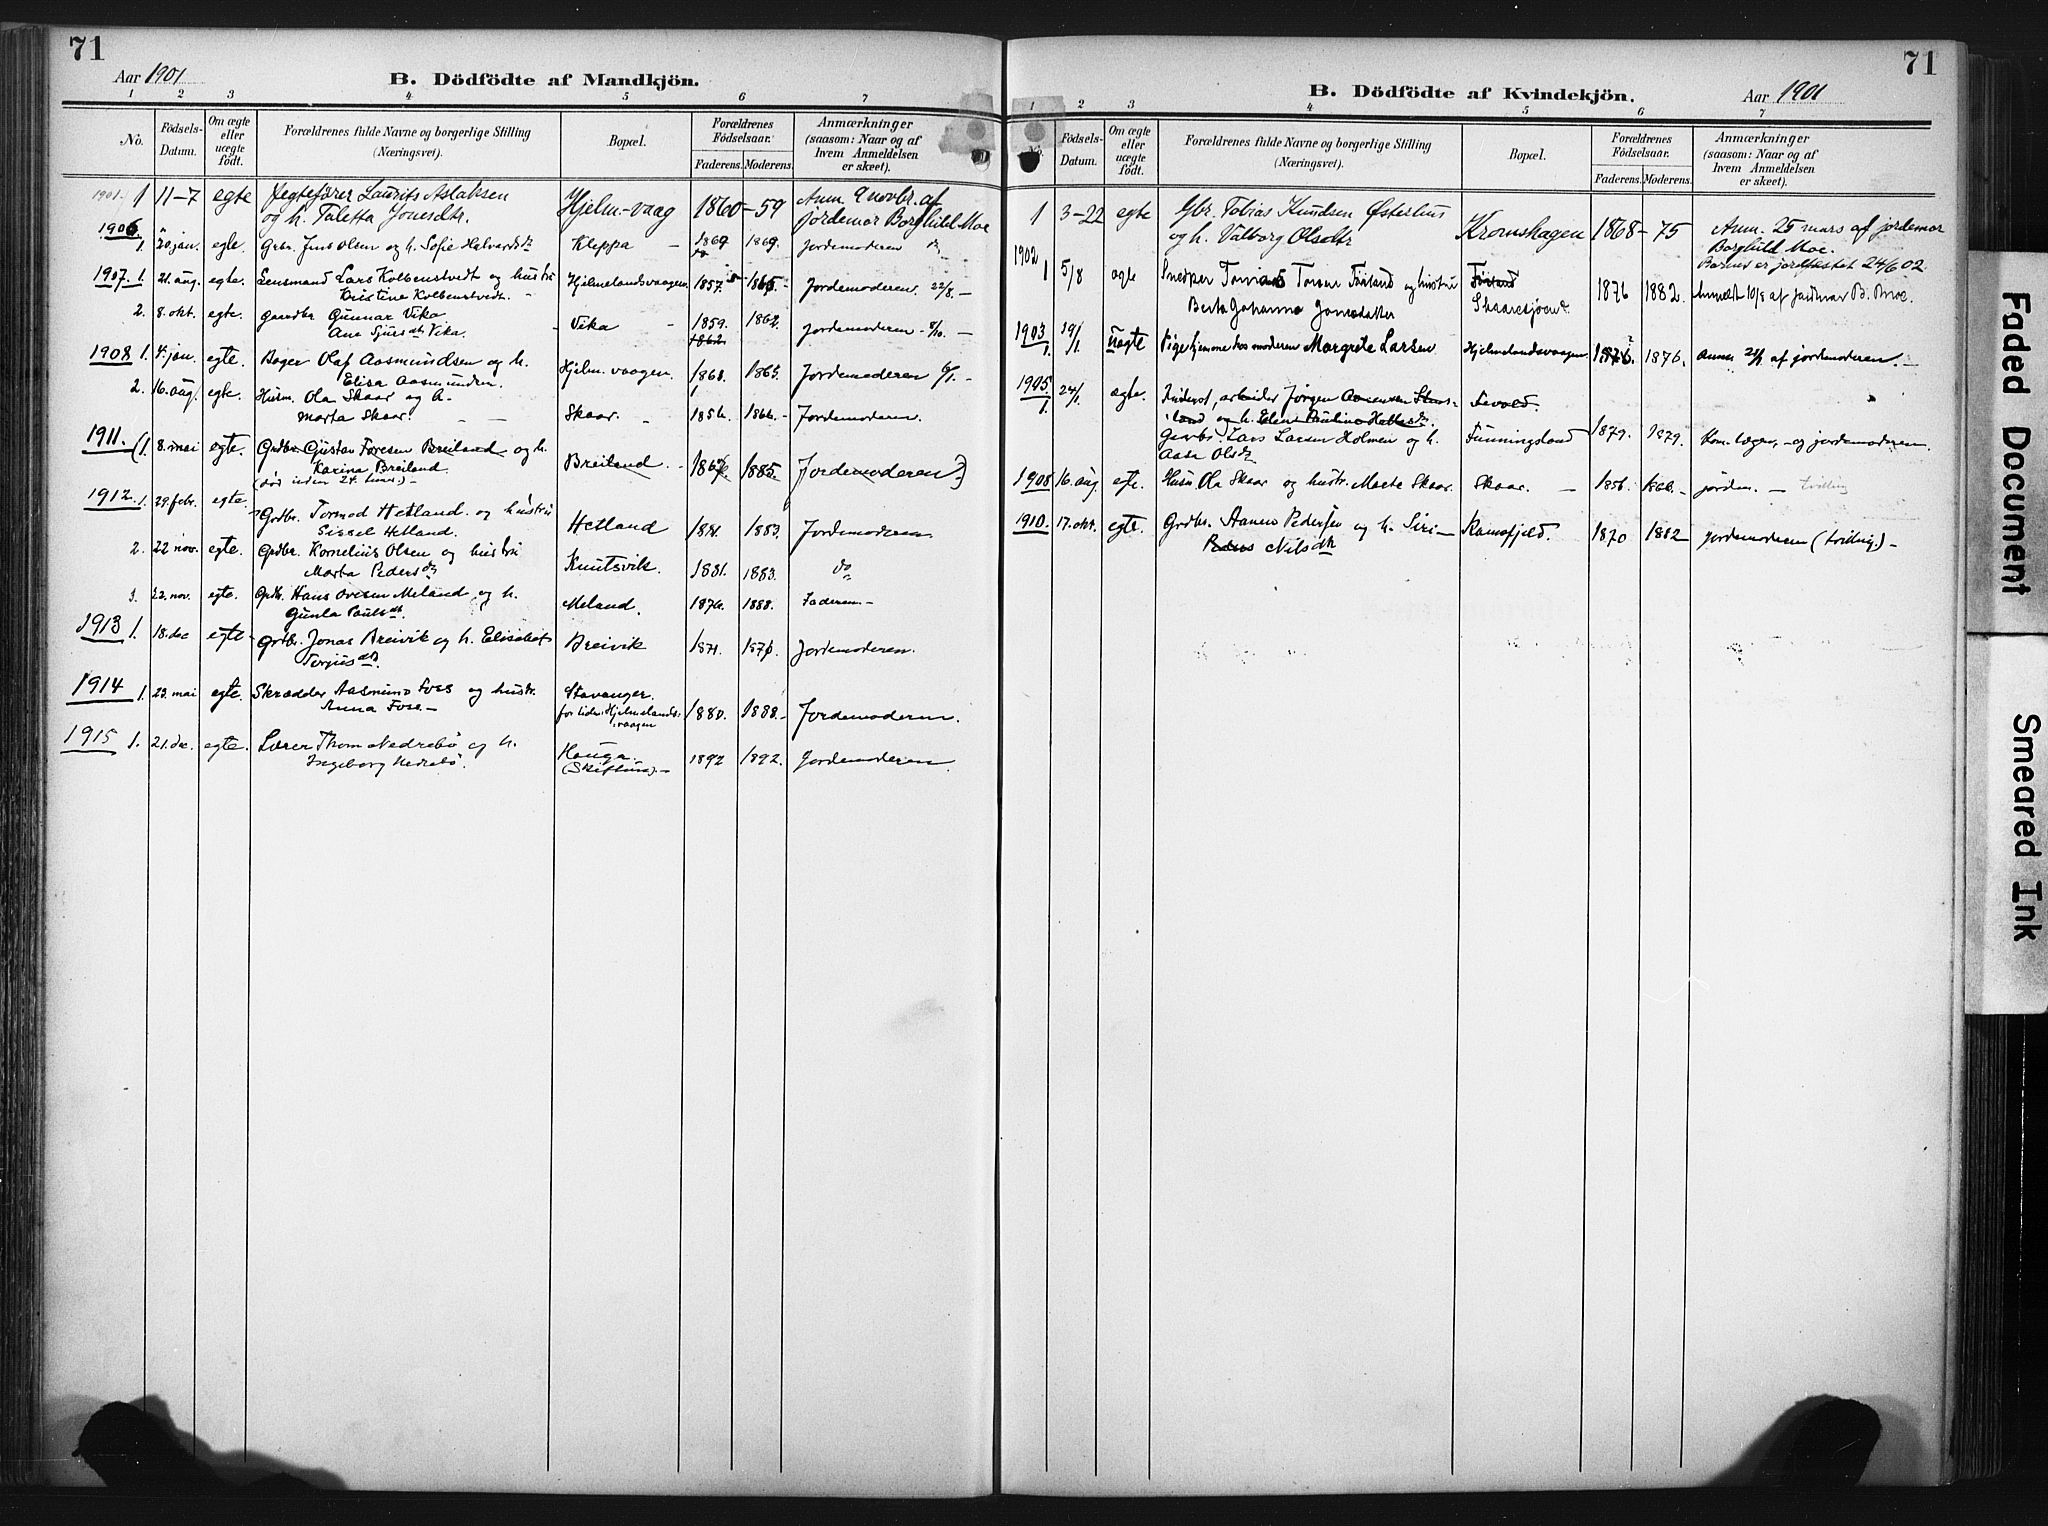 71
Aar 1901
B. Dödfödte af Mandkjön.
1 2 3 4 5 6 7
No. Födsels-Datum. Om ægte eller uægte födt. Forældrenes fulde Navne og borgerlige Stilling (Næringsvei). Bopæl. Forældrenes Födselsaar. Faderens. Moderens. Anmærkninger (saasom: Naar og af hvem Anmeldelsen er skeet).
1901. 1 11-7 egte Jegtefører Laurits Aslaksen Hjelm.-vaag 1860-59 Anm. 9 novbr. af
og h. Taletta Jonesdtr. jordemor Borghild Moe
1906
1. 20 jan. egte. Grbr. Jens Olsen og h. Sofie Halvardsdt Kleppa - 1869 1869. Jordemoderen
1907. 1. 21. aug. egte. Lensmand Lars Kolbenstvedt og hustru Hjelmelandsvaagen 1857. 1865 - Jordemoderen. 22/8. -
Kristine Kolbenstvedt. -
2. 8. okt. egte. Gaardbr Gunnar Vika Vika - 1859. 1862. Jordemoderen - 8/10. -
Ane Sjursdt Vika. 1862.
1908 1. 4. jan. egte. Bager Olaf Aasmundsen og h. Hjelm. vaagen. 1868. 1865. Jordemoderen 6/1. -
Elisa Aasmundsen.
2. 16. aug. egte. Husm. Ola Skaar og h. Skaar. - 1856. 1866. - Jordemoderen.
Marta Skaar.
1911. (1. 8. mai egte. Grdbr Gustav Toresen Breiland og h. Breiland. - 1885. Jordemoderen.)
Karina Breiland.
(död inden 24 timer.) -
1912. 1. 29. febr. egte. Grdbr. Tormod Hetland. og hustru Hetland 1881. 1883. Jordemoderen
Sissel Hetland.
2. 22 nov. egte. Grdbr. Kornelius Olsen og hustru Knutsvik. 1881. 1883. do
Marta Pedersdt
3. 22. nov. egte. Grdbr. Hans Ovesen Meland og h. Meland. 1876. 1888. Faderen. -
Gunla Paulsdt.
1913 1. 18. dec egte - Grdbr. Jonas Breivik og h. Elisabet Breivik 1871. 1870. Jordemoderen.
Torjusdt.
1914 1. 23. mai egte. Skrædder Aasmund Foss og hustr. Stavanger. 1880. 1888. - Jordemoderen.
Anna Foss. - for tiden Hjelmelands-
vaagen
1915 1. 21. dec. egte. Lærer Thom Nedrebö og h. Hauga. 1892 1892. Jordemoderen.
Ingeborg Nedrebö. (Skiftun). -
71
B. Dödfödte af Kvindekjön.
Aar 1901
1 2 3 4 5 6 7
Födsels-Datum. Om ægte eller uægte födt. Forældrenes fulde Navne og borgerlige Stilling (Næringsvei). Bopæl. Forældrenes Födselsaar. Faderens. Moderens. Anmærkninger (saasom: Naar og af hvem Anmeldelsen er skeet).
1 3-22 egte Gbr. Tobias Knudsen Østerhus Kromshagen 1868-75 Anm. 25 mars af jordemor
og h. Valborg Olsdtr Borghild Moe.
Barnet er jordfæstet 24/6 02.
1902
1 5/8 egte Snedker Tomas Tomsen Fösland og hustru Fösland 1876 1882. Anmeldt 10/8 af jordmor B. Moe.
Berta Johanna Jonasdatter
1903 19/1 uegte Pige hjemme hos moderen Margrete Larsen Hjelmelandsvaagen 1876. Anm. 21/1 af jordemoderen. -
1.
1905. 24/1 egte. arbeider Jörgen
1. og h. Elene Pauline
Gaardbr. Lars Larsen Holmen og h. Funningsland 1879. 1879. Kom. lægen, - og jordemoderen.
Aasa Olsdt
1908 16. aug. egte. Husm Ola Skaar og hustr. Marta Skaar. Skaar. - 1856. 1866. - jordem. - tvilling
1910. 17. okt. egte. Grdbr. Aanen Pedersen og h. Siri - Ramsfjeld. 1870 1882 Jordemoderen (tvilling.) -
Nilsdt
Faded Document
Smeared Ink